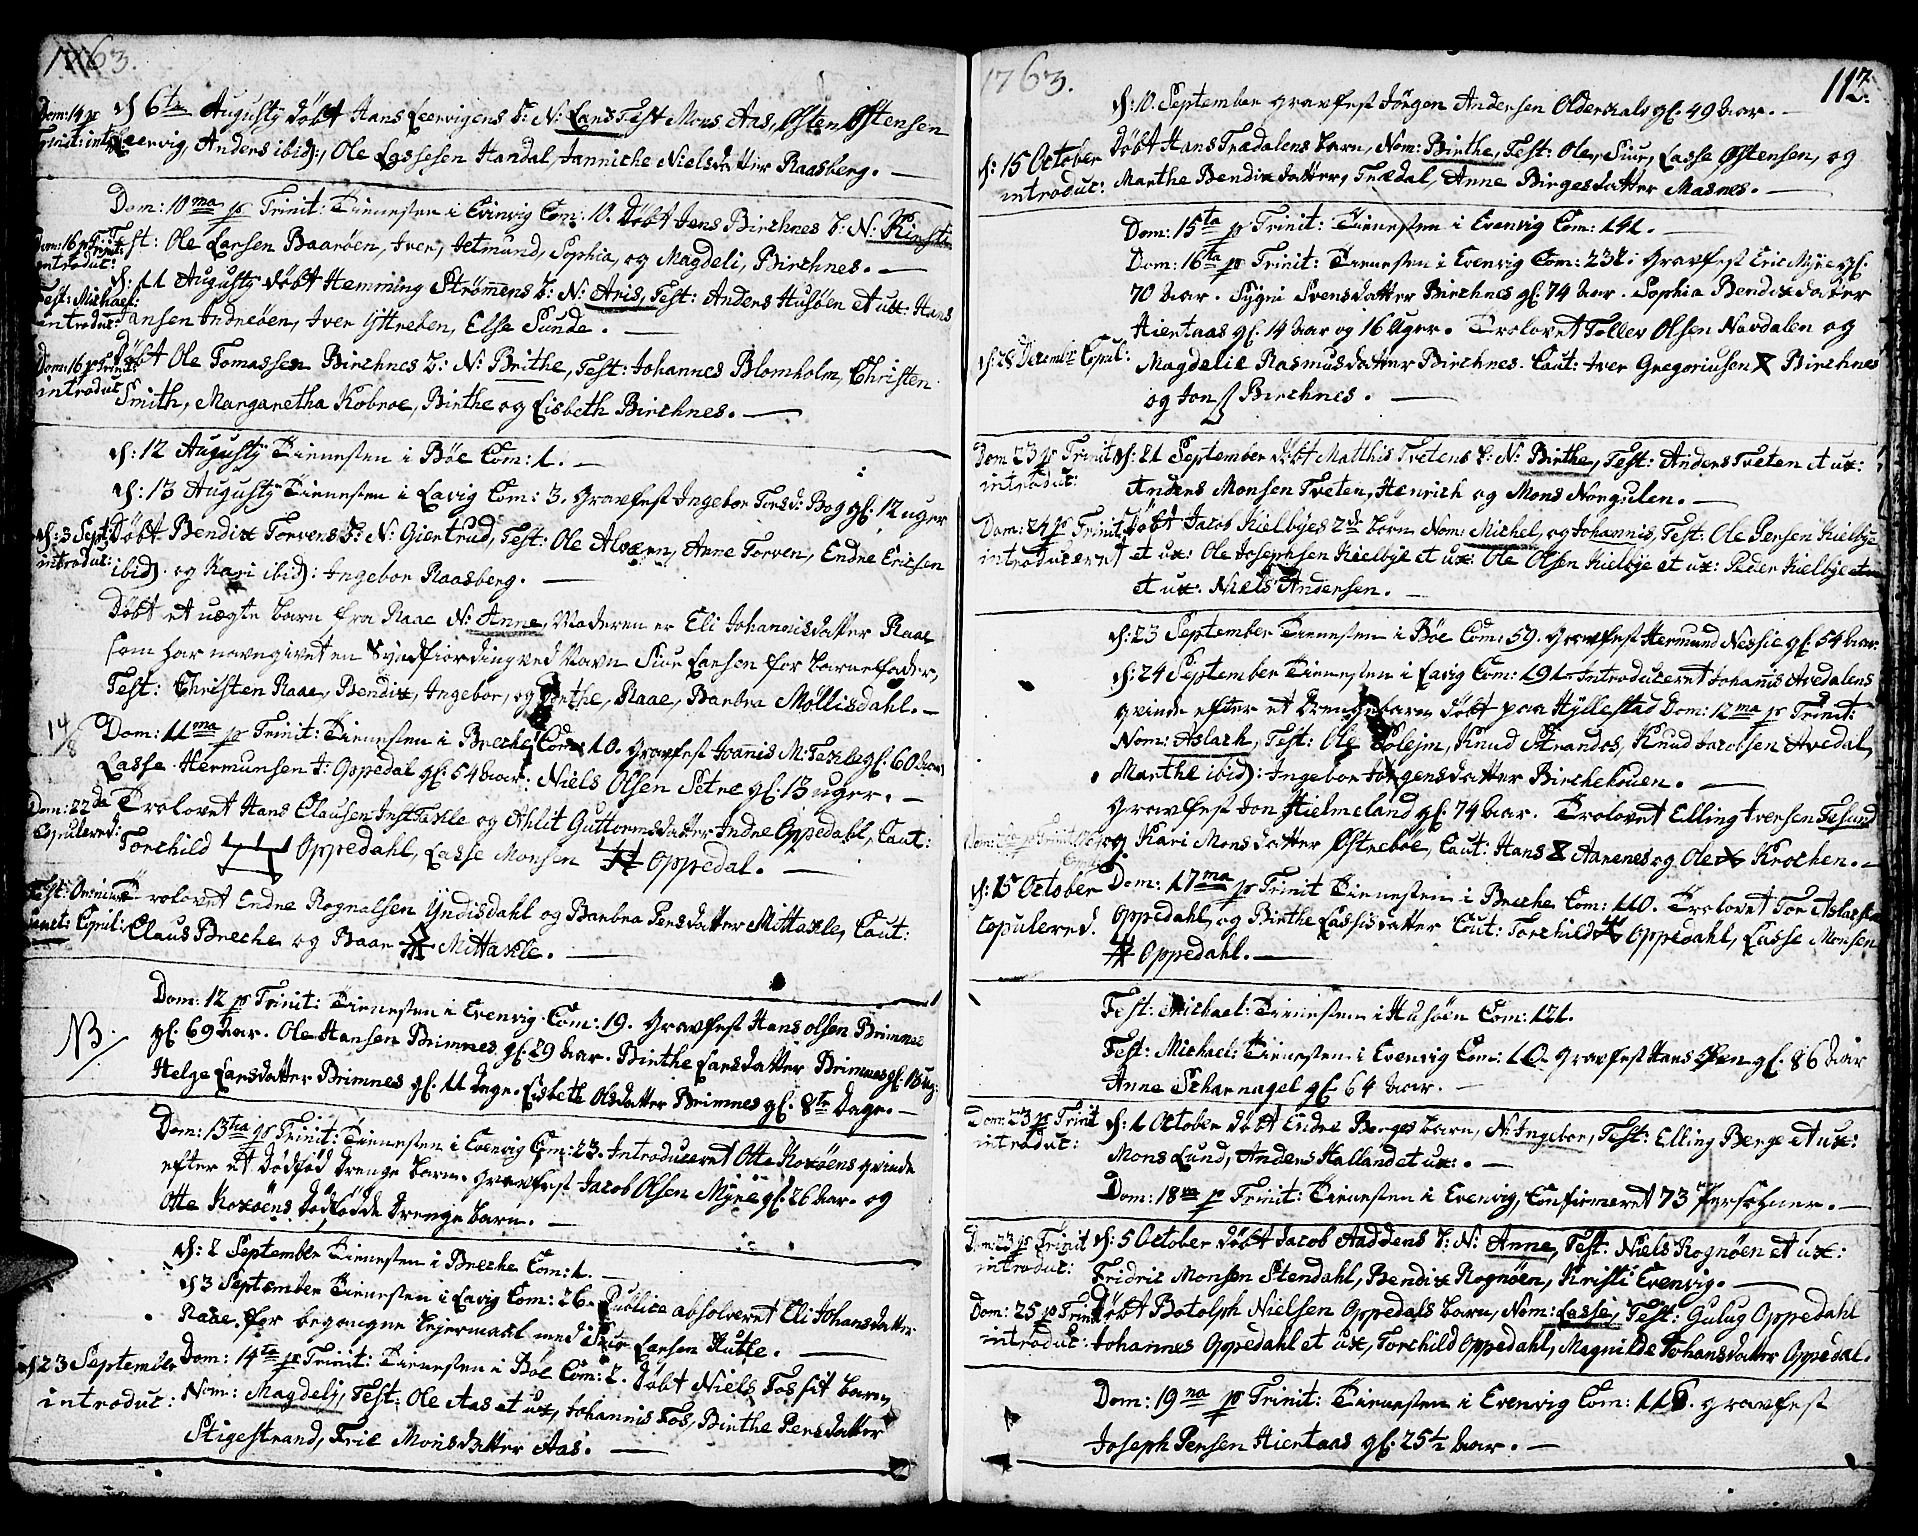 1763.
Dom: 14 p
Trinit: int:
d: 6te Augustij döbt Hans Leervigens b: N: Lars Test Mons Aas, Østen Østensen
Leervig, Anders ibid:, Ole Lassesen Handal, Jannicke Nielsdatter Raasberg. —
Dom: 10ma p Trinit: Tienesten i Evinvig Com: 10. Döbt Jens Birchnes b: N: Kirsti
Dom: 16 p Trinit:
introduc:
Test: Ole Larsen Baaröen, Iver, Jetmund, Sophia, og Magdeli, Birchnes. —
d: 11 Augustij döbt Hemming Strömens b: N: Aris, Test: Anders Husöen et ux: Hans
Fest: Michael:
introduc:
Jansen Indreböen, Iver Yttreben, Else Sunde. —
Dom: 16 p Trinit:
introduc:
Döbt Ole Tomassen Birchnes b: N: Brithe, Test: Johannes Blomholm, Christen
Smith, Margaretha Kobroe, Birthe og Lisbeth Birchnes. —
d: 12 Augustij Tienesten i Böe Com: 1. —
d: 13 Augustij Tienesten i Lavig Com: 3. Gravfest Ingebor Torsd: Bog gl: 12 uger
d: 3 Sept:
introduc:
Döbt Bendix Torvens b: N: Giertrud, Test: Ole Alværn, Anne Torven, Endre Ericsen
ibid: og Kari ibid: Ingebor Raasberg. —
Döbt et uægte barn fra Raae N: Anne, Moderen er Eli Johannisdatter Raae
som har navngivet en Syndfiording ved Navn Siur Larsen for barnefader,
Test: Christen Raae, Bendix, Ingebor, og Birthe, Raae, Barbra Möllisdahl. —
14/8
Dom: 11ma p Trinit: Tienesten i Breche Com: 10. Gravfest Joanis M: Taxle gl: 60 aar
Lasse Hermunsen I: Oppedal gl: 54 aar. Niels Olsen Setre gl: 13 uger. —
Dom: 22da
Copulered:
Trolovet Hans Clausen Inst Taxle og Ahlit Guttormsdatter Indre Oppedahl, Caut:
Torchild Oppedahl, Lasse Monsen Oppedal. —
Trolovet Endre Rognalsen Yndisdahl og Barbra Persdatter Mittaxle, Caut:
Claus Breche og Baar Mittaxle. —
Dom: 12 p Trinit: Tienesten i Evenvig Com: 19. Gravfest Hans olsen Brimnes
NB.
gl: 69 aar. Ole Hansen Brimnes gl: 29 aar. Birthe Larsdatter Brimnes gl: 13 ug:
Helge Larsdatter Brimnes gl: 11 dage. Lisbeth Olsdatter Brimnes gl: 8te dage. —
Dom: 13tia p Trinit: Tienesten i Evenvig Com: 23. Introduceret Otte Koxöens qvinde
efter et dödföd drenge barn. Gravfest Jacob Olsen Myre gl: 26 aar. og
Otte Koxöens dödfödde drenge barn. —
d: 2 September Tienesten i Breche Com: 1. —
d 3 September Tienesten i Lavig Com: 26. Publice absolveret Eli Johansdatter
Raae, for begangne Lejermaal med Siur Larsen Kutle. —
d 23 September
introduc:
Dom: 14ta p Trinit: Tienesten i Böe Com: 2. Döbt Niels Fossit barn,
Nom: Magdelj, Test: Ole Aas et ux, Johannis Fos, Birthe Persdatter
Stigestrand, Eric Monsdatter Aas. —
1763.
112.
d: 10. September gravfest Jörgen Andersen Olderdals gl: 49 aar. —
d: 15 October
introduc:
Döbt Hans Trædalens barn, Nom: Birthe, Test: Ole, Siur, Lasse Østensen, og
Marthe Bendixdatter, Trædal, Anne Birgesdatter Masnes. —
Dom: 15ta p Trinit: Tienesten i Evenvig Com: 141. —
Dom: 16ta p Trinit: Tienesten i Evenvig Com: 232. Gravfest Eric Myre gl:
70 aar. Sygni Svensdatter Birchnes gl: 74 aar. Sophia Bendixdatter
Hientaas gl: 14 aar og 16 Uger. Trolovet Toller Olsen Nordalen og
d: 28 Decembr: Copul:
Magdelie Rasmusdatter Birchnes. Caut: Iver Gregoriusen X Birchnes
og Jon Birchnes. —
Dom 23 p Trinit
introduc:
d: 21 September döbt Matthis Tvetens b: N: Birthe, Test: Anders Tveten et ux:
Anders Monsen Tveten, Henrich og Mons Norgulen. —
Dom: 24 p Trinit
introduceret
Döbt Jacob Kielbyes 2de börn Nom: Michel, og Johannis, Test: Ole Persen Kielbye
et ux: Ole Josephsen Kielbye et ux: Ole Olsen Kielbye et ux: Peder Kielbye
et ux: Niels Andersen. —
d: 23 September Tienesten i Böe Com: 59. Gravfest Hermund Nessie gl: 54 aar.
d: 24 September Tienesten i Lavig Com: 191. Introduceret Johanis Avedalens
qvinde efter et Drengebarn döbt paa Hyllestad Dom: 12ma p Trinit:
Nom: Aslach, Test: Ole Solejm, Knud Strandos, Knud Jacobsen Avedal,
Marthe ibid: Ingebor Jörgensdatter Birchehouen. —
Gravfest Jon Hielmeland gl: 74 aar. Trolovet Elling Iversen Tesund
og Kari Monsdatter Østreböe, Caut: Hans X Aarenes og Ole X Krochen. —
d: 15 October
copulered.
Dom: 17ma p Trinit Tienesten i Breche Com: 110. Trolovet Tor Aslach
Oppedahl, og Birthe Lassisdatter Caut: Torchild Oppedahl, Lasse Monsen
Oppedahl. —
Fest: Michael: Tienesten i Husöen Com: 121.
Fest: Michael: Tienesten i Evenvig Com: 10. Gravfest Hans Øren gl: 86 aar
Anne Scharnagel gl: 64 aar. —
Dom: 23 p Trinit
introduc:
d: 1 October döbt Endre Berges barn, N: Ingebor, Test: Elling Berge et ux:
Mons Lund, Anders Halland et ux: —
Dom: 18va p Trinit: Tienesten i Evenvig, Confirmeret 73 Persohner. —
Dom: 23 p Trinit
introduc:
d: 5 October döbt Jacob Aaddens b: N: Anne, Test: Niels Rognöen et ux:
Fridric Monsen Stendahl, Bendix Rognöen, Kristi Evenvig. —
Dom: 25 p Trinit
introduc:
Döbt Botolph Nielsen Oppedals barn, Nom: Lasse, Test: Gulug Oppedahl
Johannes Oppedahl et ux, Torchild Oppedahl, Magnilde Johansdatter Oppedal.
Dom: 19na p Trinit: Tienesten i Evenvig Com: 116. gravfest
Joseph Persen Hientaas gl: 25½ aar. —